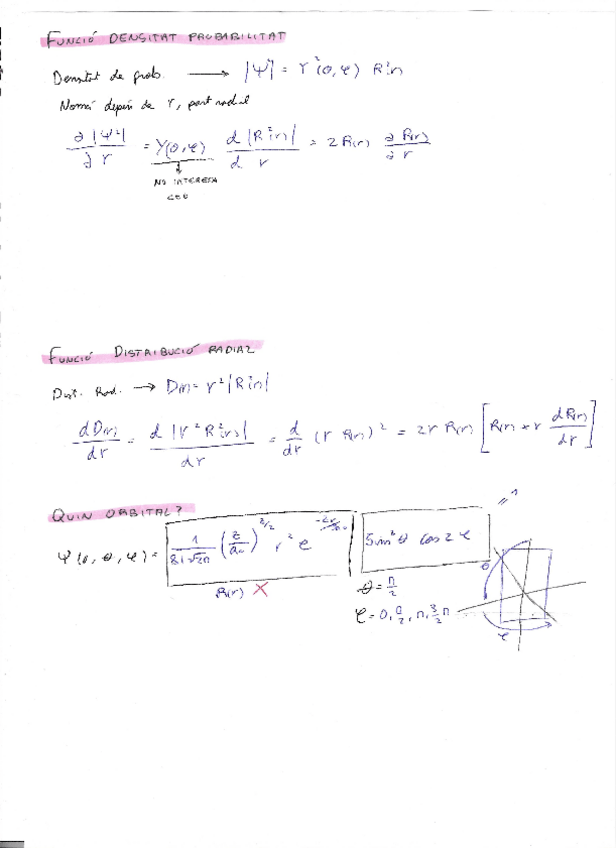 FUNCIÓ DENSITAT PROBABILITAT
Densitat de prob. → |Ψ²| = Y²(θ,φ) R²(r)
Només depèn de r, part radial
∂|Ψ²|/∂r = Y(θ,φ) d|R²(r)|/dr = 2R(r) ∂R(r)/∂r
NO INTERESA
FUNCIÓ DISTRIBUCIÓ RADIAL
Dist. Rad. → D(r) = r²|R²(r)|
dD(r)/dr = d|r²R²(r)|/dr = d/dr (r R(r))² = 2r R(r) [R(r) + r dR(r)/dr]
QUIN ORBITAL?
Ψ(r, θ, φ) = 1/(81√2π) (z/a₀)^(3/2) r² e sin²θ cos 2φ
R(r) X
θ = π/2
θ
φ